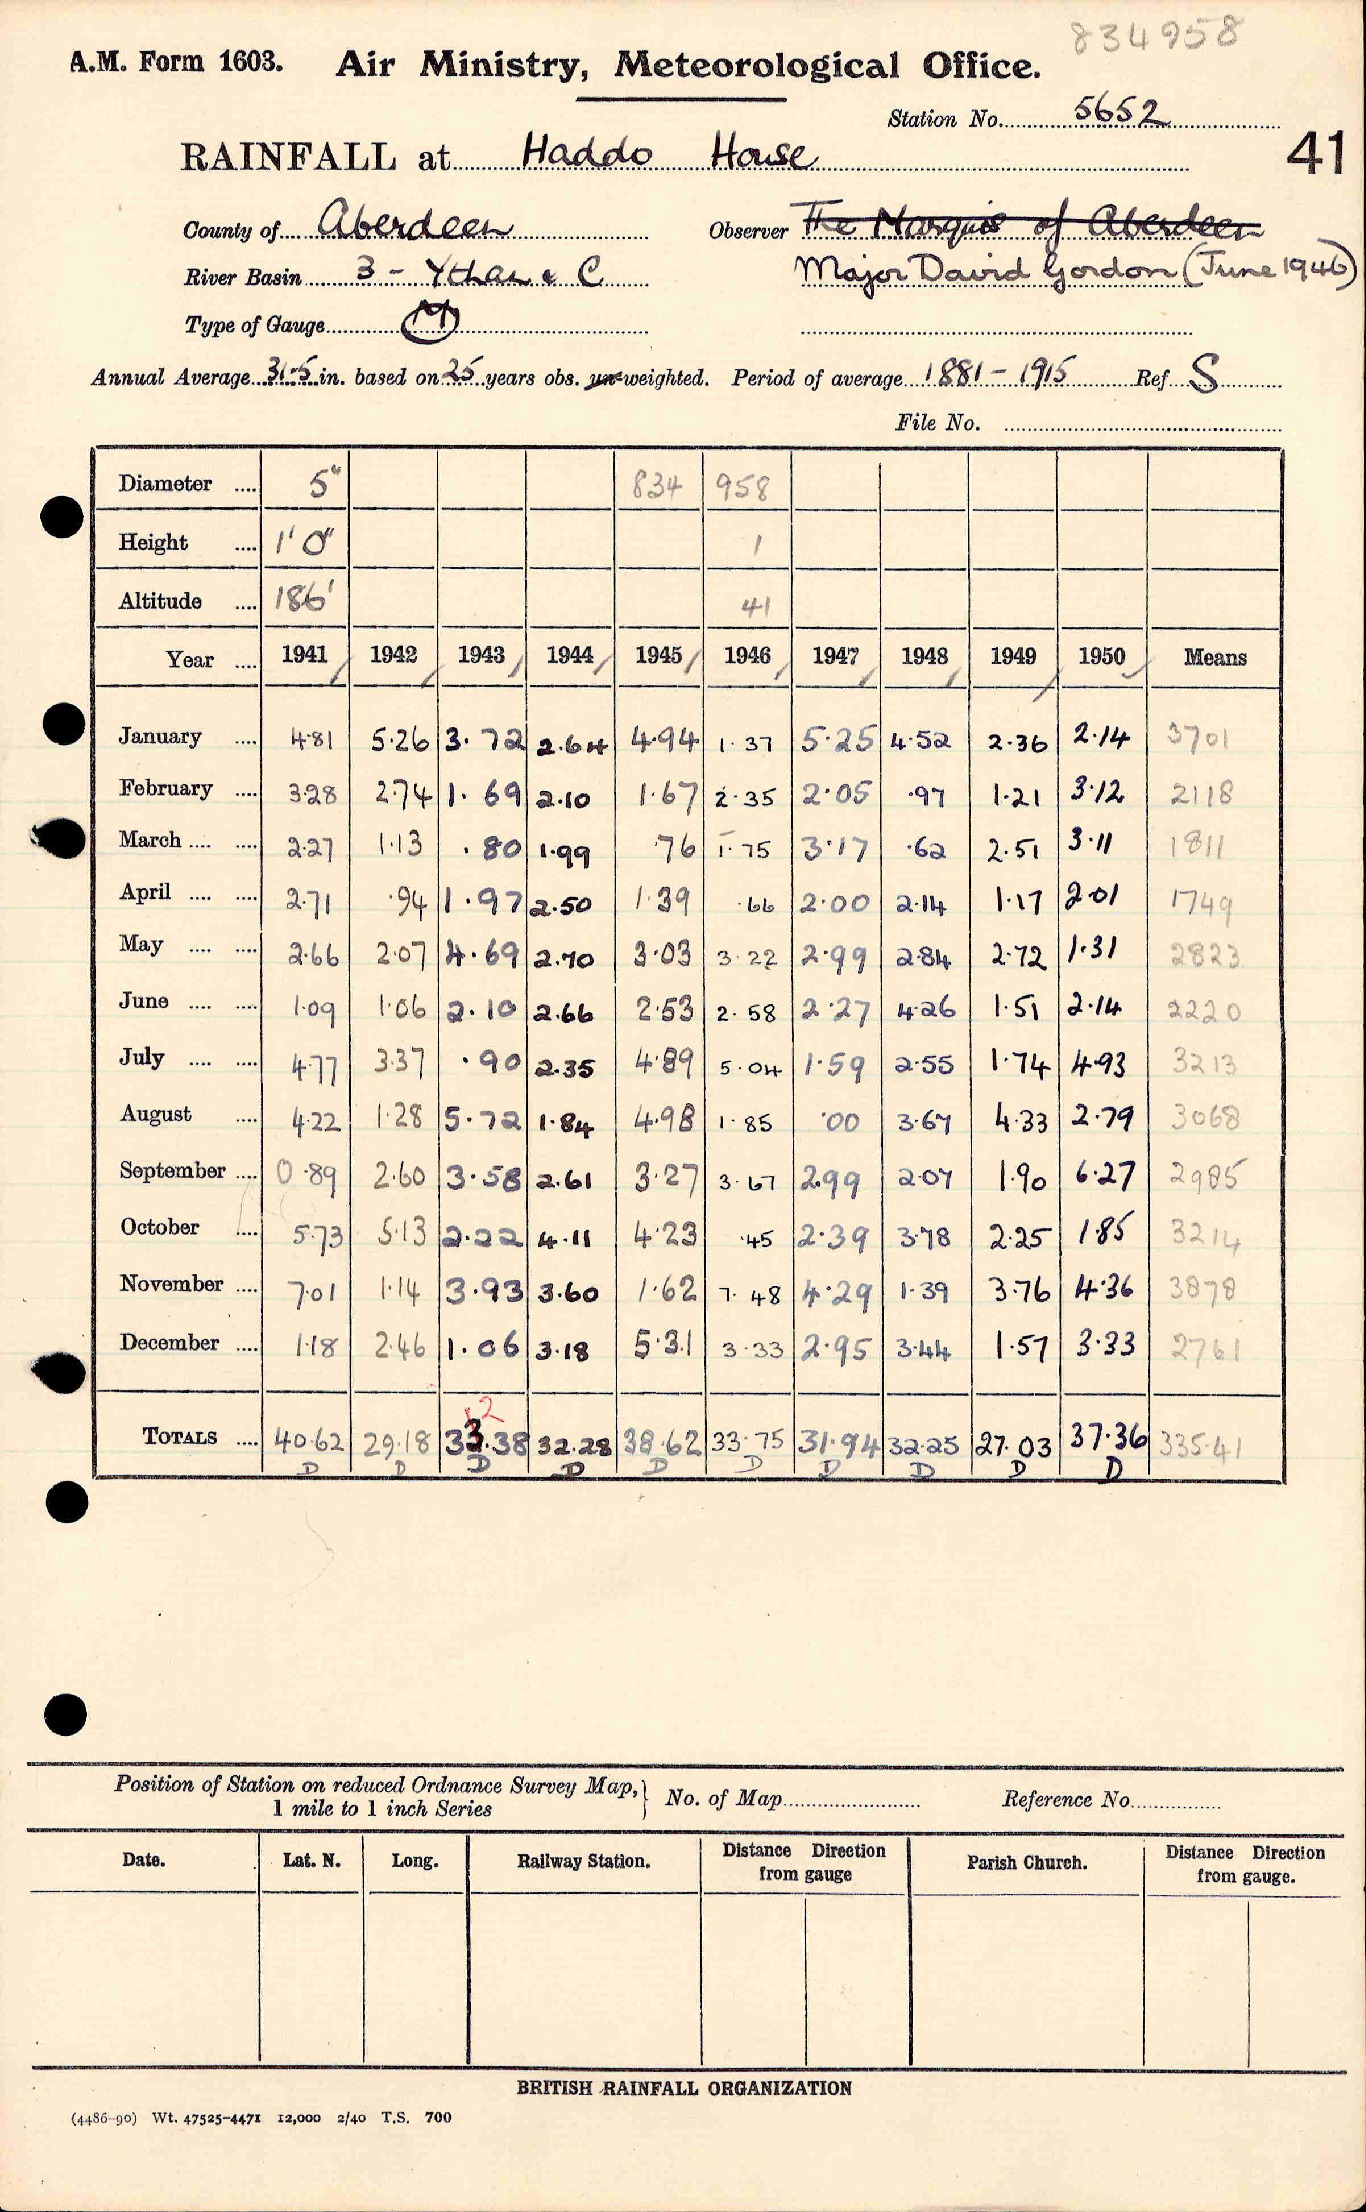 834958
A.M. Form 1603. Air Ministry, Meteorological Office.
Station No. 5652
RAINFALL at Haddo House 41
County of Aberdeen Observer The Marquis of Aberdeen
River Basin 3 - Ythan & C Major David Gordon (June 1946)
Type of Gauge M
Annual Average 31.5 in. based on 25 years obs. un-weighted. Period of average 1881 - 1915 Ref S
File No.
Diameter .... 5" 834 958
Height .... 1' 0" 1
Altitude .... 186' 41
Year .... 1941 1942 1943 1944 1945 1946 1947 1948 1949 1950 Means
January .... 4.81 5.26 3.72 2.64 4.94 1.37 5.25 4.52 2.36 2.14 3701
February .... 3.28 2.74 1.69 2.10 1.67 2.35 2.05 .97 1.21 3.12 2118
March .... .... 2.27 1.13 .80 1.99 .76 1.75 3.17 .62 2.51 3.11 1811
April .... .... 2.71 .94 1.97 2.50 1.39 .66 2.00 2.14 1.17 2.01 1749
May .... .... 2.66 2.07 4.69 2.70 3.03 3.22 2.99 2.84 2.72 1.31 2823
June .... .... 1.09 1.06 2.10 2.66 2.53 2.58 2.27 4.26 1.51 2.14 2220
July .... .... 4.77 3.37 .90 2.35 4.89 5.04 1.59 2.55 1.74 4.93 3213
August .... 4.22 1.28 5.72 1.84 4.98 1.85 .00 3.67 4.33 2.79 3068
September .... 0.89 2.60 3.58 2.61 3.27 3.67 2.99 2.07 1.90 6.27 2985
October .... 5.73 5.13 2.22 4.11 4.23 .45 2.39 3.78 2.25 1.85 3214
November .... 7.01 1.14 3.93 3.60 1.62 7.48 4.29 1.39 3.76 4.36 3878
December .... 1.18 2.46 1.06 3.18 5.31 3.33 2.95 3.44 1.57 3.33 2761
2
TOTALS .... 40.62 29.18 33.38 32.28 38.62 33.75 31.94 32.25 27.03 37.36 335.41
D D D D D D D D D D
Position of Station on reduced Ordnance Survey Map, No. of Map Reference No.
1 mile to 1 inch Series
Date. Lat. N. Long. Railway Station. Distance Direction from gauge Parish Church. Distance Direction from gauge.
BRITISH RAINFALL ORGANIZATION
(4486-90) Wt. 47525-4471 12,000 2/40 T.S. 700